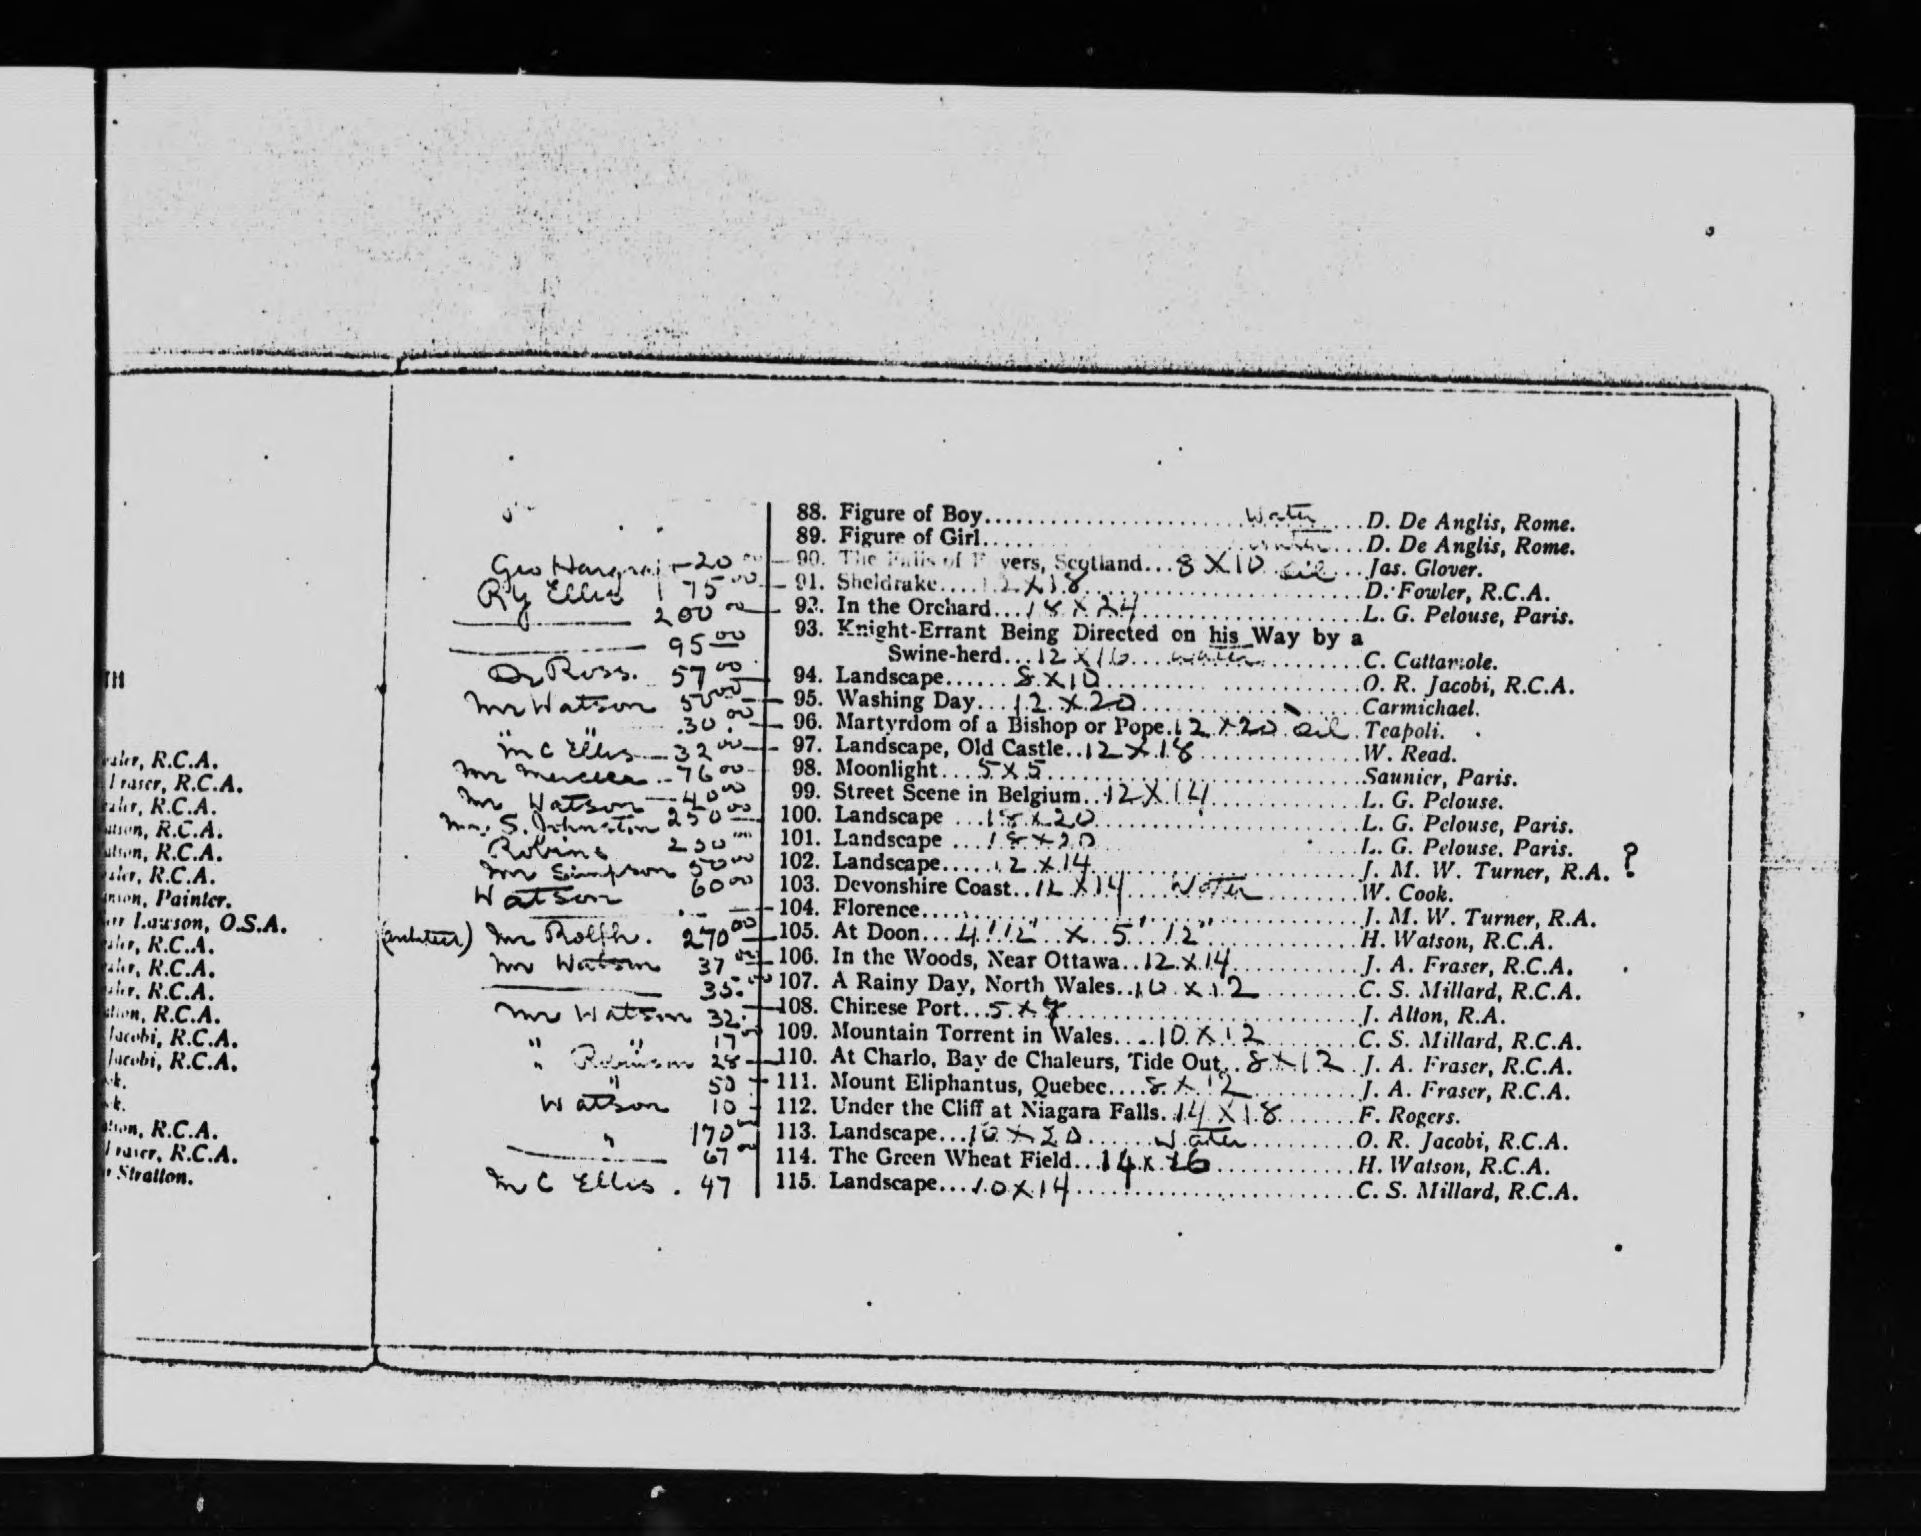 88. Figure of Boy........ Water ....D. De Anglis, Rome.
89. Figure of Girl........ water ...D. De Anglis, Rome.
Geo 20 00 — 90. The Falls of Foyers, Scotland...8 X 10 oil ...Jas. Glover.
R Y Ellis 75 00 — 91. Sheldrake....12 X 18........D. Fowler, R.C.A.
——— 200 00 — 92. In the Orchard...18 X 24........L. G. Pelouse, Paris.
——— 95 00 93. Knight-Errant Being Directed on his Way by a
Swine-herd...12 X 16....water........C. Cattamole.
Dr Ross. 57 00 — 94. Landscape......8 X 10........O. R. Jacobi, R.C.A.
Mr Watson 50 00 — 95. Washing Day...12 X 20........Carmichael.
" " 30 00 — 96. Martyrdom of a Bishop or Pope.12 X 20 oil .Teapoli.
M C Ellis — 32 00 — 97. Landscape, Old Castle..12 X 18........W. Read.
Mr Mercer 76 00 — 98. Moonlight....5 X 5........Saunier, Paris.
Mr Watson — 40 00 99. Street Scene in Belgium..12 X 14........L. G. Pelouse.
S. Johnston 250 00 — 100. Landscape ...18 X 20........L. G. Pelouse, Paris.
Robins 230 00 101. Landscape ...18 X 20........L. G. Pelouse, Paris.
Mr Simpson 50 00 102. Landscape.....12 X 14........J. M. W. Turner, R.A. ?
Watson 60 00 103. Devonshire Coast..12 X 14 Water........W. Cook.
——— — 104. Florence........J. M. W. Turner, R.A.
(architect) Mr Rolph. 270 00 — 105. At Doon....4' 12" X 5' 12"........H. Watson, R.C.A.
Mr Watson 37 00 — 106. In the Woods, Near Ottawa..12 X 14........J. A. Fraser, R.C.A.
——— 35 00 107. A Rainy Day, North Wales..10 X 12........C. S. Millard, R.C.A.
Mr Watson 32 — 108. Chinese Port...5 X 7........J. Alton, R.A.
" " 17 00 109. Mountain Torrent in Wales....10 X 12........C. S. Millard, R.C.A.
" Robinson 28 — 110. At Charlo, Bay de Chaleurs, Tide Out..8 X 12.J. A. Fraser, R.C.A.
" 50 — 111. Mount Eliphantus, Quebec....8 X 12........J. A. Fraser, R.C.A.
Watson 10 — 112. Under the Cliff at Niagara Falls.14 X 18......F. Rogers.
" 170 00 113. Landscape...16 X 20......Water........O. R. Jacobi, R.C.A.
——— 67 00 114. The Green Wheat Field...14 X 26........H. Watson, R.C.A.
M C Ellis . 47 115. Landscape....10 X 14........C. S. Millard, R.C.A.
TH
R.C.A.
Fraser, R.C.A.
R.C.A.
R.C.A.
R.C.A.
R.C.A.
Painter.
Lawson, O.S.A.
R.C.A.
R.C.A.
R.C.A.
R.C.A.
Jacobi, R.C.A.
Jacobi, R.C.A.
k.
k.
R.C.A.
Fraser, R.C.A.
Stratton.